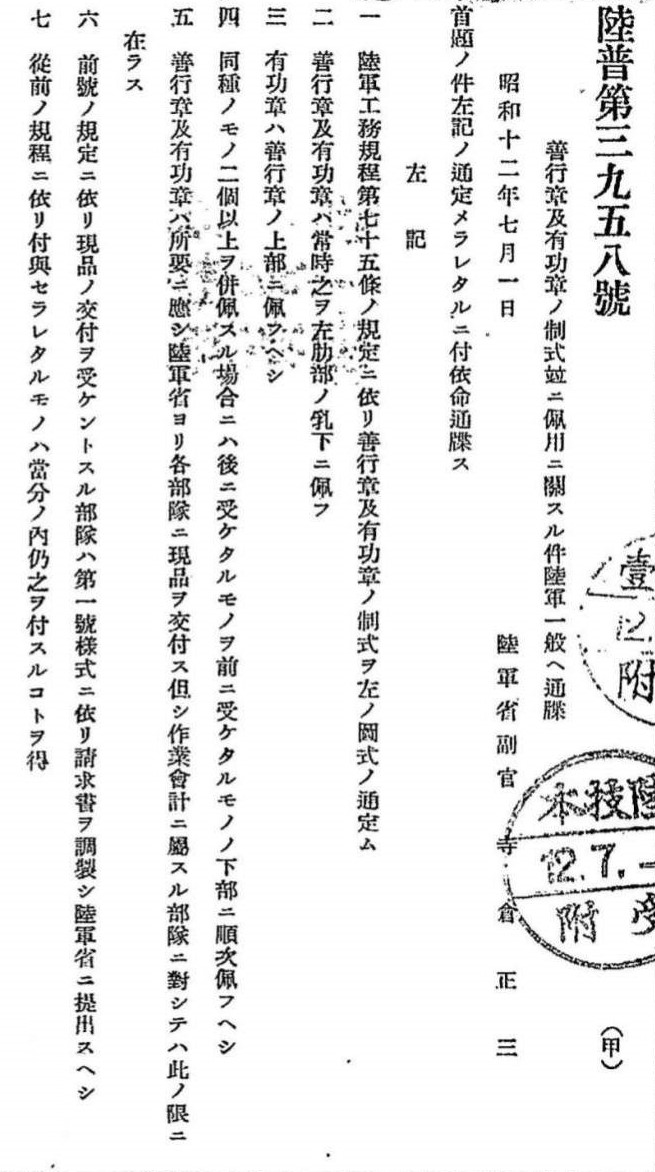 陸普第三九五八號
（甲）
善行章及有功章ノ制式竝ニ佩用ニ關スル件陸軍一般ヘ通牒
昭和十二年七月一日
陸軍省副官 寺倉正三
首題ノ件左記ノ通定メラレタルニ付依命通牒ス
左記
一 陸軍工務規程第七十五條ノ規定ニ依リ善行章及有功章ノ制式ヲ左ノ圖式ノ通定ム
二 善行章及有功章ハ常時之ヲ左肋部ノ乳下ニ佩フ
三 有功章ハ善行章ノ上部ニ佩フヘシ
四 同種ノモノ二個以上ヲ併佩スル場合ニハ後ニ受ケタルモノヲ前ニ受ケタルモノノ下部ニ順次佩フヘシ
五 善行章及有功章ハ所要ニ應シ陸軍省ヨリ各部隊ニ現品ヲ交付ス但シ作業會計ニ屬スル部隊ニ對シテハ此ノ限ニ
在ラス
六 前號ノ規定ニ依リ現品ノ交付ヲ受ケントスル部隊ハ第一號樣式ニ依リ請求書ヲ調製シ陸軍省ニ提出スヘシ
七 從前ノ規程ニ依リ付與セラレタルモノハ當分ノ內仍之ヲ付スルコトヲ得
壹
12.
附
陸技本
12.7.
受附